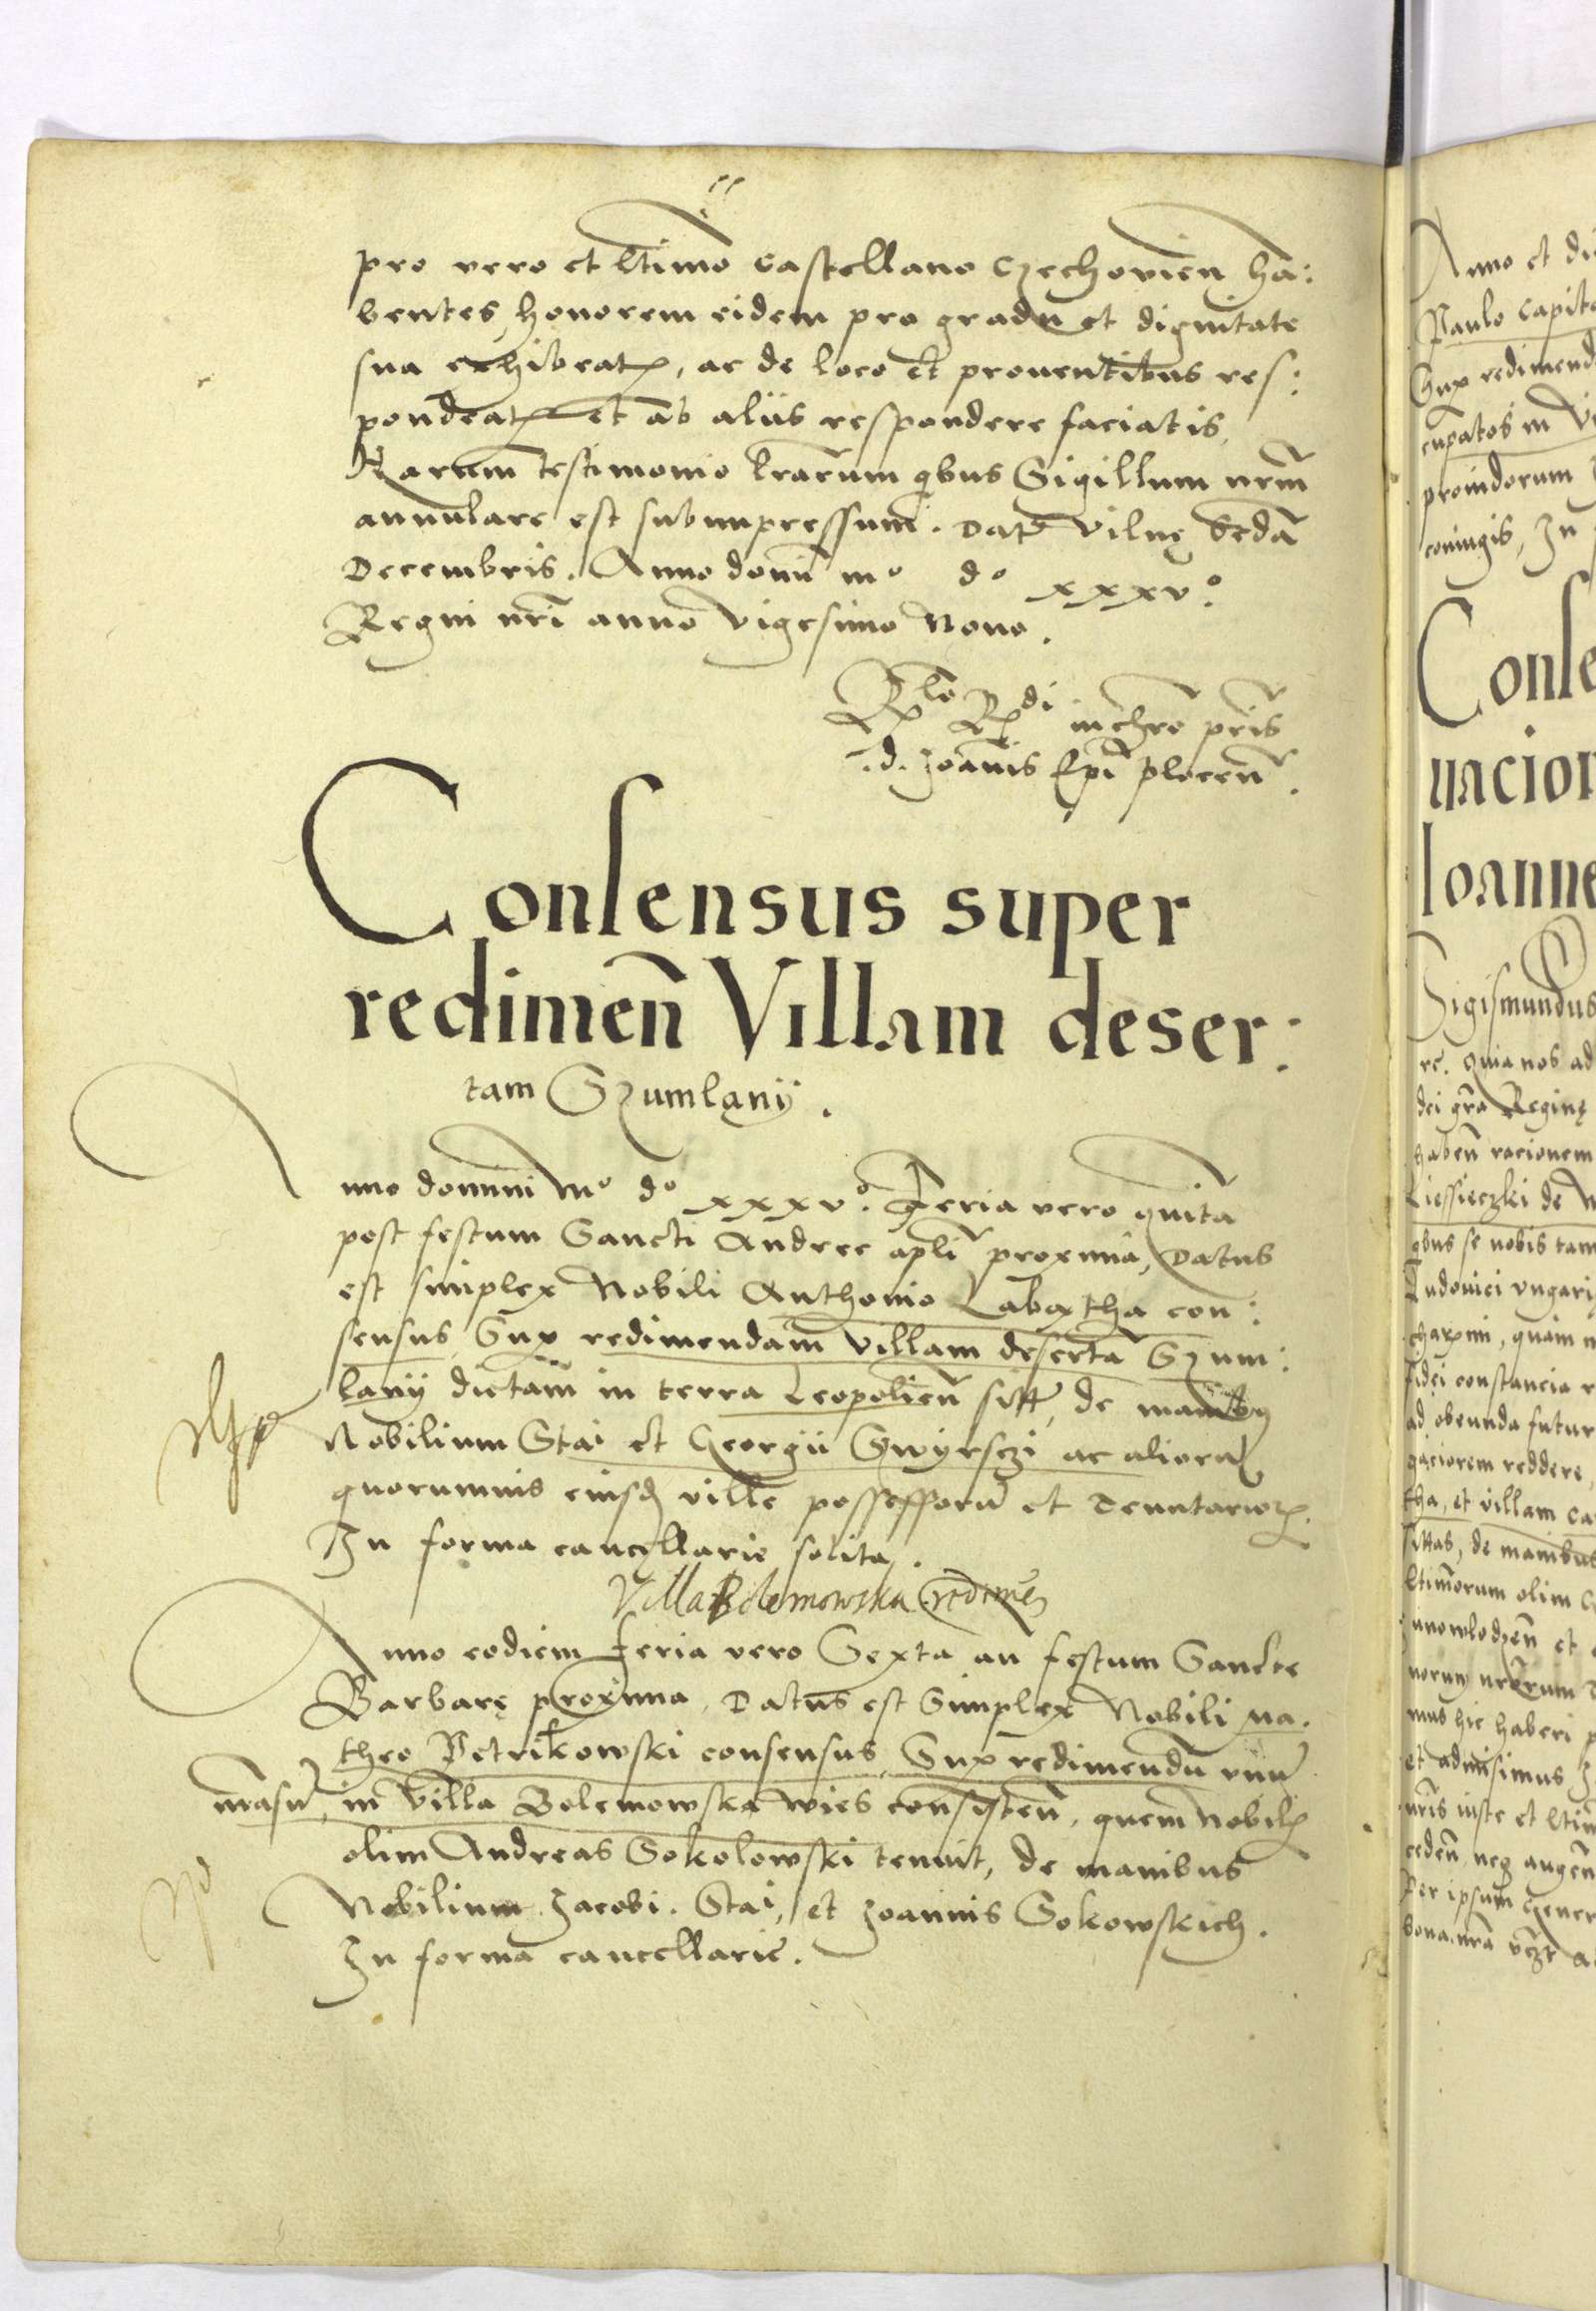 pro vero et ltimo castellano Czechovien ha:
bentes, honorem eidem pro gradu et dignitate
sua exhibeatis, ac de loco et proventibus res:
pondeatis et ab aliis respondere faciatis,
Harum testimonio lrarum qbus Sigillum nrm
annulare est subimpressum. Dat Vilnę
Decembris. Anno domi mº dº xxxvº.
Regni nri anno vigesimo Nono.
Rlo Rdi in chro pris
.d. Joanis Epi plocen.
Consensus super
redimen Villam deser:
tam Szumlanij.
Anno domini Mº dº xxxvº. Feria vero quinta
post festum Sancti Andree apli proxima, Datus
est simplex Nobili Anthonio con:
sensus, Sup redimendam villam deserta Szum:
lanij dictam in terra Leopolien sitt, de manibus
Nobilium Stai et Georgii Swyrsczi ac aliorum
quorumvis eiusd ville possessoru et Tenutarior.
In forma cancellarie solita.
Villa Bolemowska redimen
Anno eodiem feria vero Sexta an festum Sancte
Barbarę proxima, Datus est Simplex Nobili Ma.
theo Petrikowski consensus, Sup redimendu unu
mansu, in Villa Bolemowska wies consisten, quem Nobilis
olim Andreas Sokolowski tenuit, de manibus
Nobilium Jacobi. Stai, et Joannis Sokowskich.
In forma cancellarie.
Anno et di
Paulo capita
Sup redimend
cupatos in Vi
proindorum
coniugis, In
Conse
nacion
Ioanne
Sigismundus
re. Quia nos ad
dei gra Reginę
haben racionem
Liessieczki de
qbus se nobis tam
Ludovici Ungari
quam
fidei constancia
ad obeunda futur
gaciorem reddere,
tha, et villam ca
sittas, de manibus
ltimorum olim
et
norum
mus hic haberi
et admisimus
nris iuste et ltim
ceden, neq augen
Per ipsum Gener
bona nra